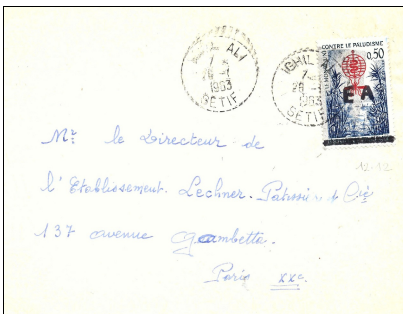 ALI
26-1
1963
SETIF
IGHIL ALI
26-1
1963
SETIF
CONTRE LE PALUDISME
0,50
EA
12-12
Mr le Directeur de
l'Etablissement. Lechner. Patissier et Cie
137 avenue Gambetta.
Paris XXe.